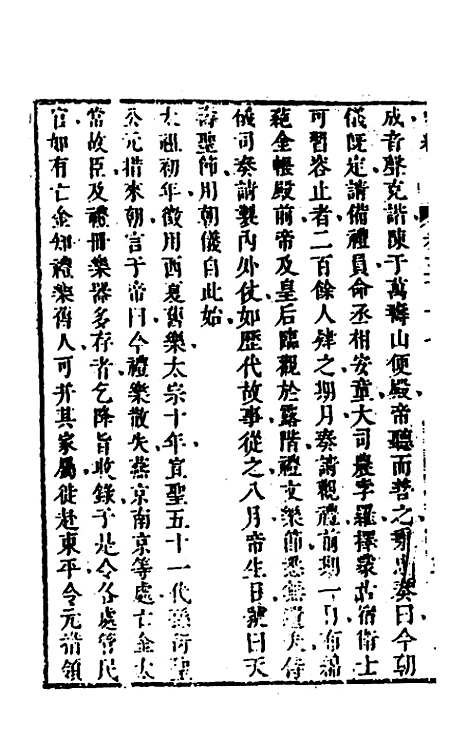 成音聲克諧陳于萬壽山便殿帝聽而善之 奏曰今朝
儀既定請備禮員命丞相安童大司農孛羅擇蒙古宿衛士
可習容止者二百餘人肄之期月奏請觀禮前期一日布綿
蕝金帳殿前帝及皇后臨觀於露階禮文樂節悉無遺失侍
儀司奏請製內外仗如歷代故事從之八月帝生日號曰天
壽聖節用朝儀自此始
太祖初年徵用西夏舊樂太宗十年宣聖五十一代孫衍聖
公元措來朝言于帝曰今禮樂散失燕京南京等處亡金太
常故臣及禮冊樂器多存者乞降旨收錄于是令各處管民
官如有亡金知禮樂舊人可并其家屬徙赴東平令元措領